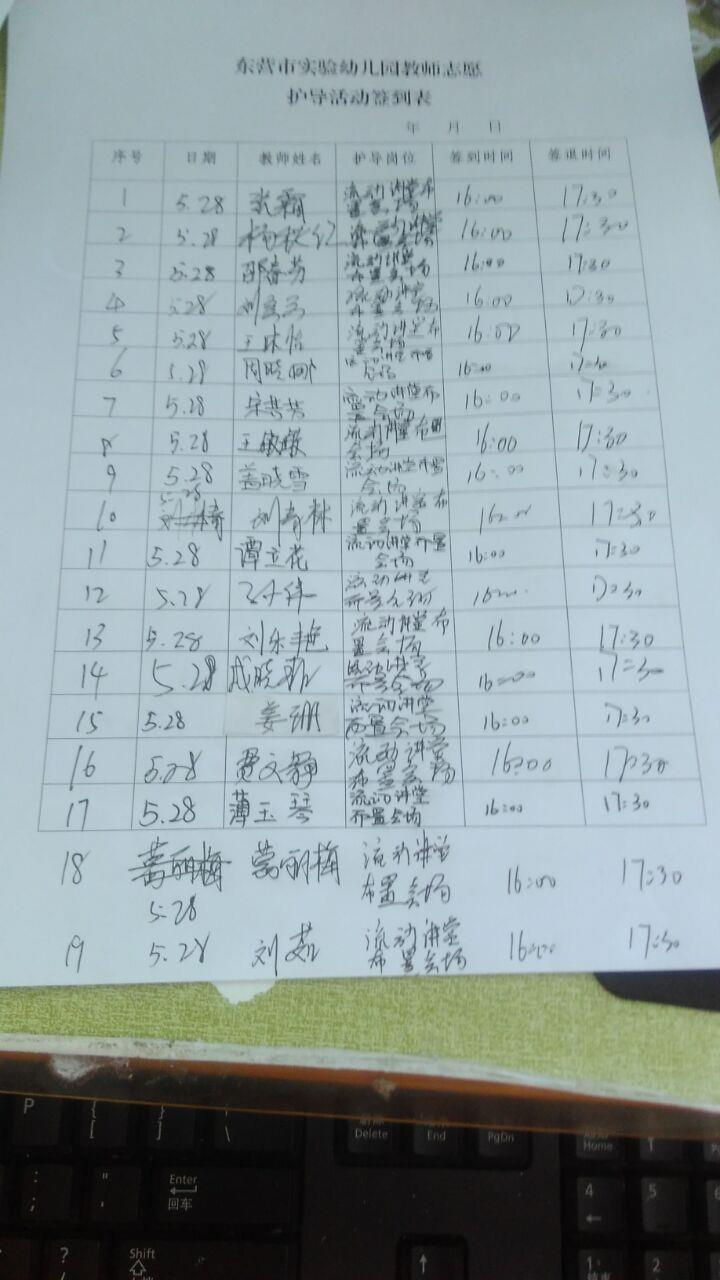 东营市实验幼儿园教师志愿
护导活动签到表
年 月 日
序号 日期 教师姓名 护导岗位 签到时间 签退时间
1 5.28 张霜 流动讲堂布置会场 16:00 17:30
2 5.28 杨秋红 流动讲堂布置会场 16:00 17:30
3 5.28 邵春芳 流动讲堂布置会场 16:00 17:30
4 5.28 流动讲堂布置会场 16:00 17:30
5 5.28 王咏怡 流动讲堂布置会场 16:00 17:30
6 5.28 周晓娜 流动讲堂布置会场 16:00 17:30
7 5.28 宋芸芳 流动讲堂布置会场 16:00 17:30
8 5.28 王敏 流动讲堂布置会场 16:00 17:30
9 5.28 盖晓雪 流动讲堂布置会场 16:00 17:30
10 5.28 刘春林 流动讲堂布置会场 16:00 17:30
11 5.28 谭立花 流动讲堂布置会场 16:00 17:30
12 5.28 流动讲堂布置会场 16:00 17:30
13 5.28 刘乐艳 流动讲堂布置会场 16:00 17:30
14 5.28 成晓 流动讲堂布置会场 16:00 17:30
15 5.28 姜珊 流动讲堂布置会场 16:00 17:30
16 5.28 贾文静 流动讲堂布置会场 16:00 17:30
17 5.28 薄玉琴 流动讲堂布置会场 16:00 17:30
18 5.28 丽梅 流动讲堂布置会场 16:00 17:30
19 5.28 刘茹 流动讲堂布置会场 16:00 17:30
P { [ } ] | \ Delete End PgDn Home
: ; " ' Enter 回车 4 5
? / Shift 1 2